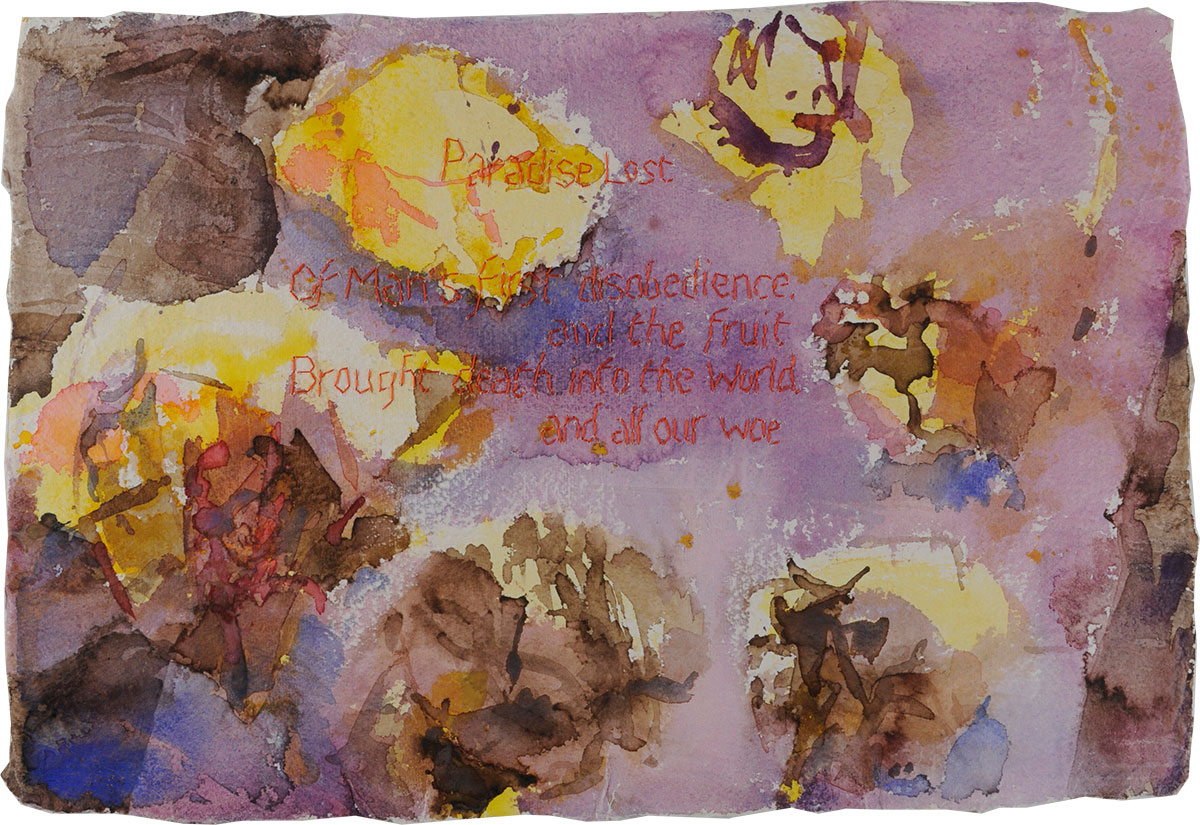 Paradise Lost
Of Man's first disobedience,
and the fruit
Brought death into the World
and all our woe